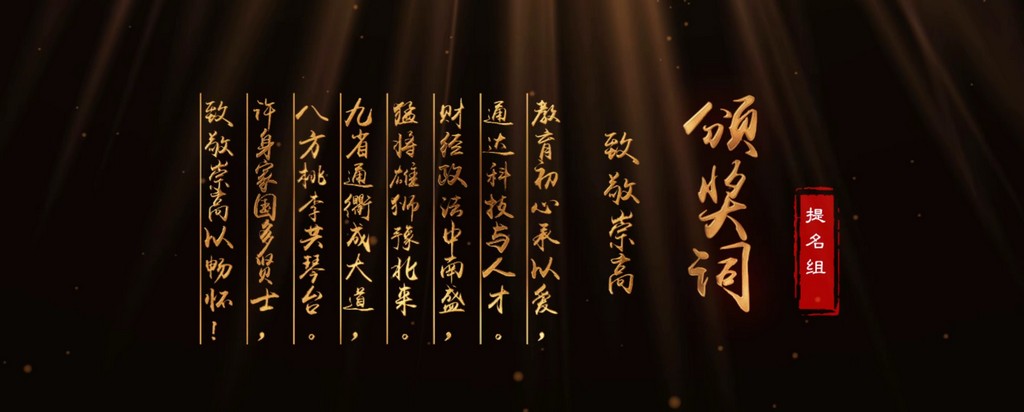 提名组
颁奖词
致敬崇高
教育初心承以爱，
通达科技与人才。
财经政法中南盛，
猛将雄狮豫北来。
九省通衢成大道，
八方桃李共琴台。
许身家国多贤士，
致敬崇高以畅怀！